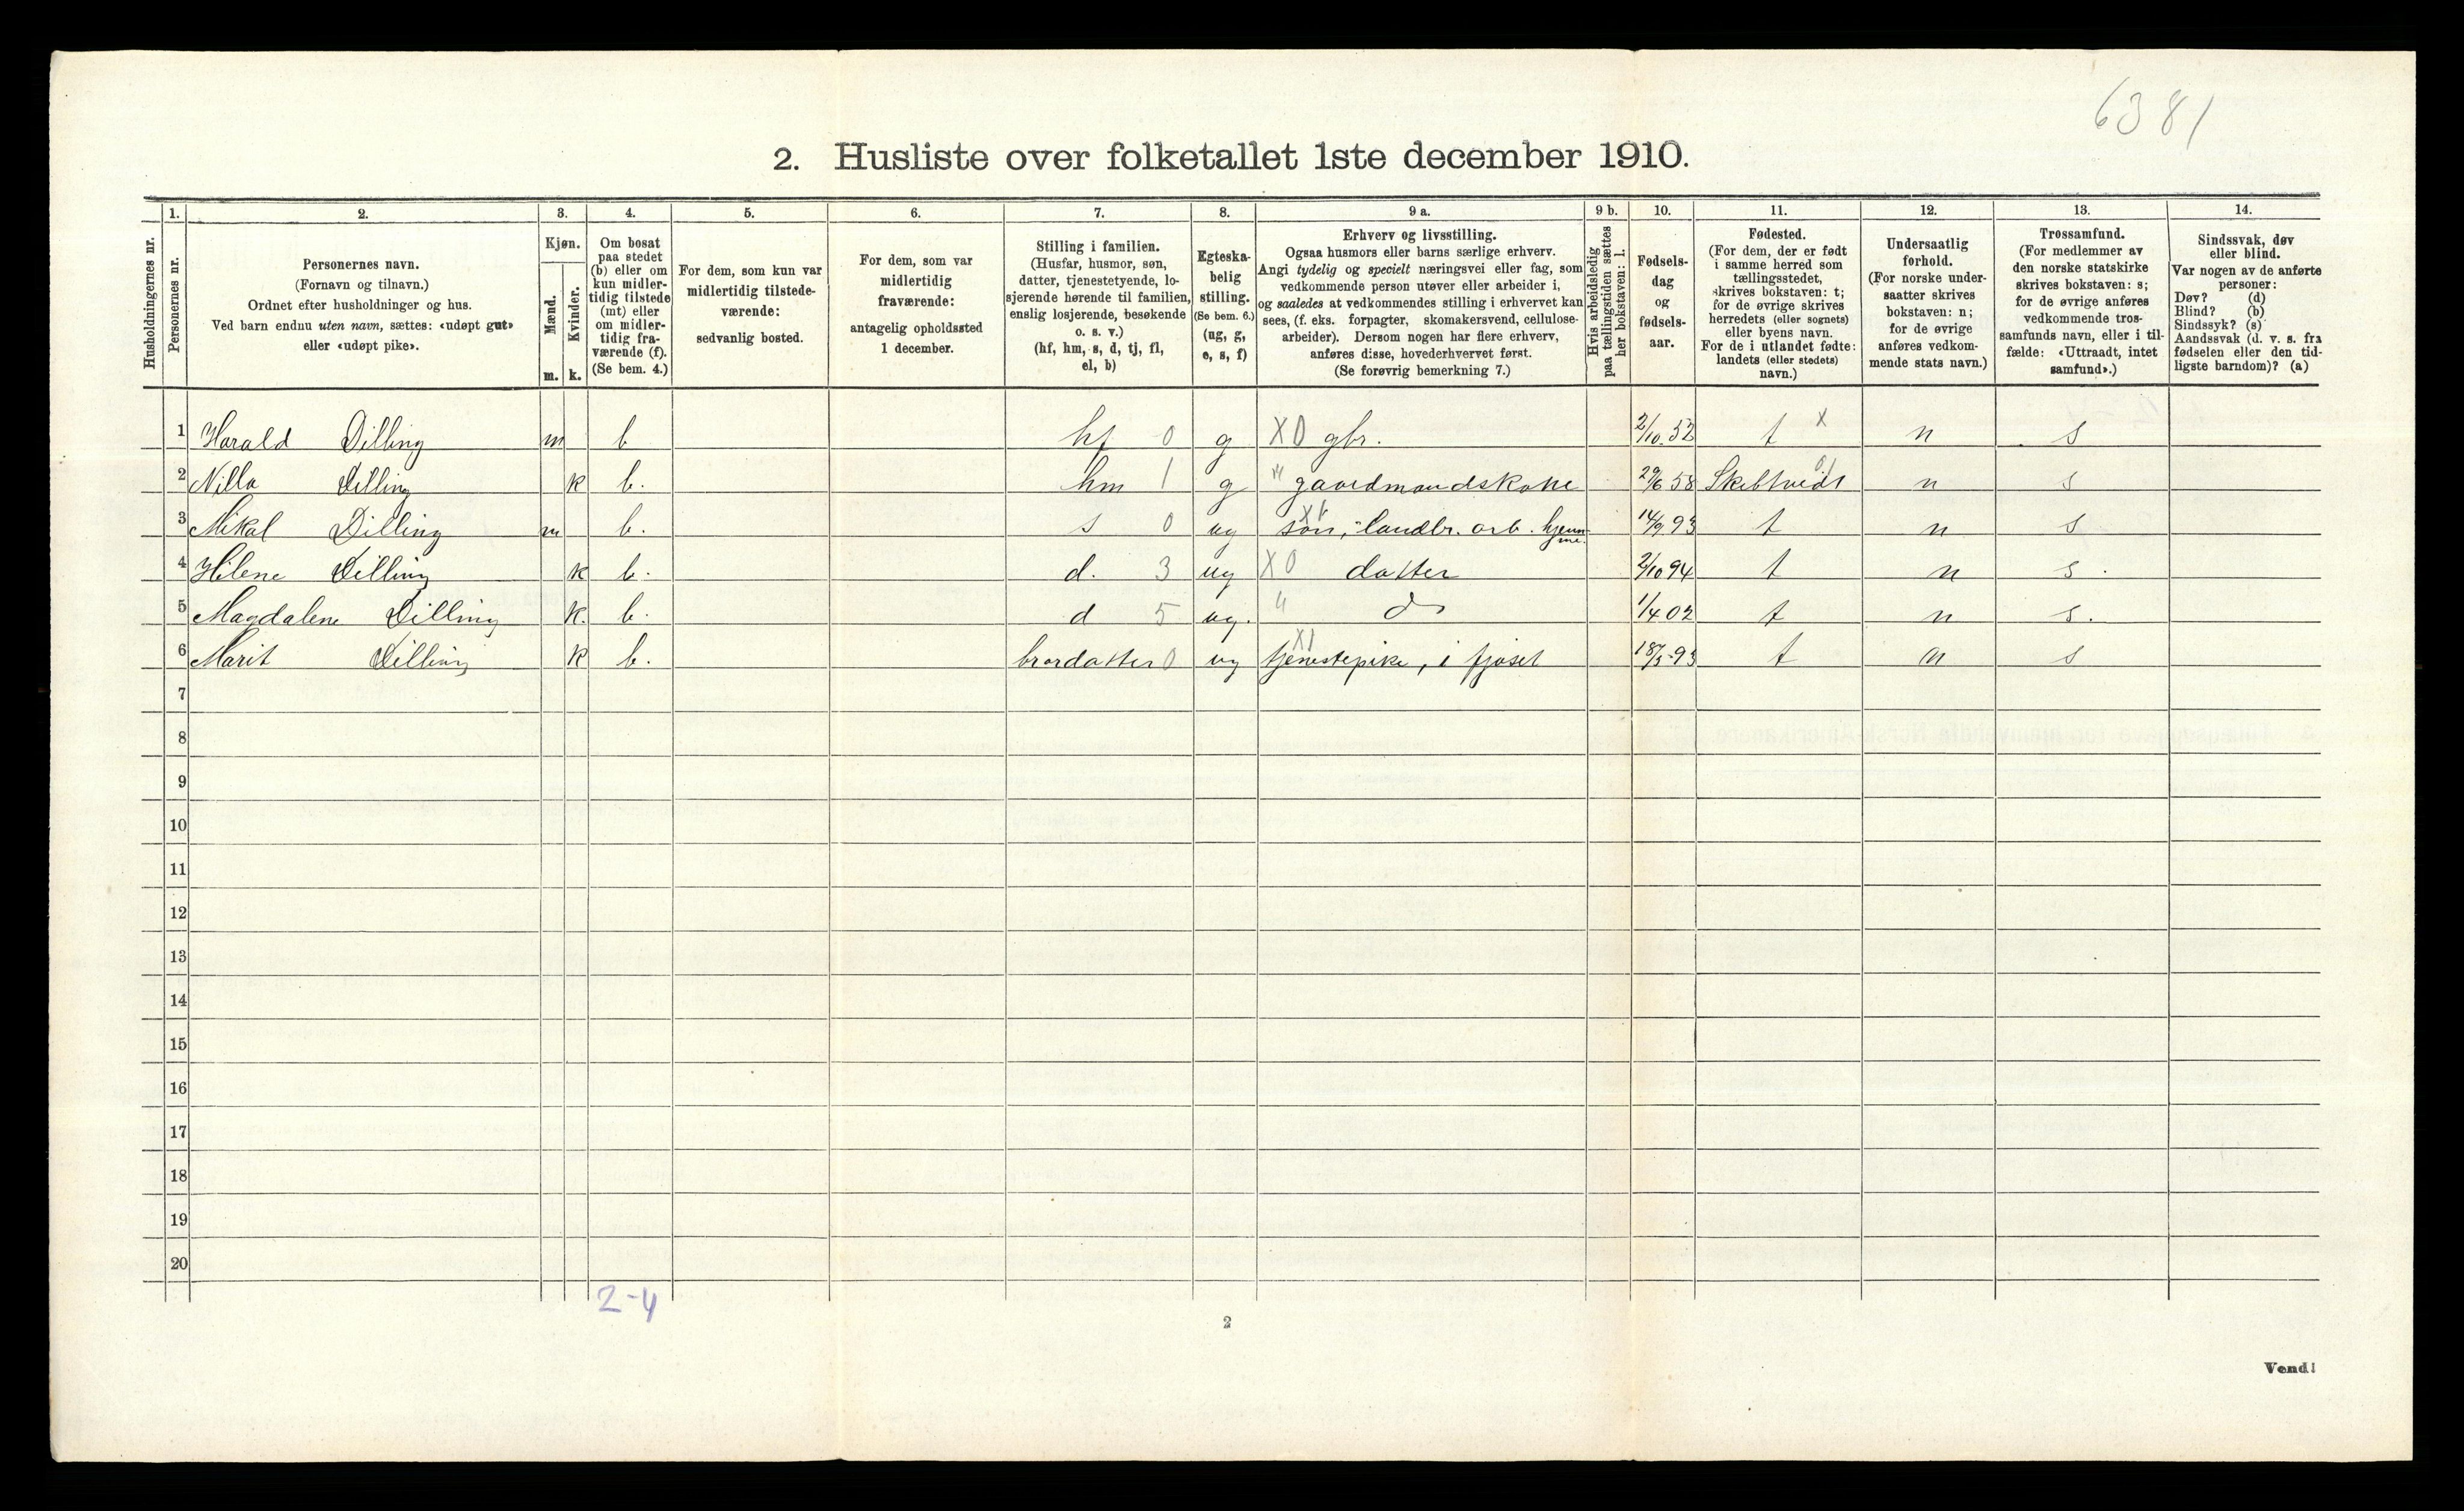 6381
2. Husliste over folketallet 1ste december 1910.
Husholdningernes nr.
1. Personernes nr.
2. Personernes navn.
(Fornavn og tilnavn.)
Ordnet efter husholdninger og hus.
Ved barn endnu uten navn, sættes: «udøpt gut»
eller «udøpt pike».
3. Kjøn.
Mænd. Kvinder.
m. k.
4. Om bosat
paa stedet
(b) eller om
kun midler-
tidig tilstede
(mt) eller
om midler-
tidig fra-
værende (f).
(Se bem. 4.)
5. For dem, som kun var
midlertidig tilstede-
værende:
sedvanlig bosted.
6. For dem, som var
midlertidig
fraværende:
antagelig opholdssted
1 december.
7. Stilling i familien.
(Husfar, husmor, søn,
datter, tjenestetyende, lo-
sjerende hørende til familien,
enslig losjerende, besøkende
o. s. v.)
(hf, hm, s, d, tj, fl,
el, b)
8. Egteska-
belig
stilling.
(Se bem. 6.)
(ug, g,
e, s, f)
9 a. Erhverv og livsstilling.
Ogsaa husmors eller barns særlige erhverv.
Angi tydelig og specielt næringsvei eller fag, som
vedkommende person utøver eller arbeider i,
og saaledes at vedkommendes stilling i erhvervet kan
sees, (f. eks. forpagter, skomakersvend, cellulose-
arbeider). Dersom nogen har flere erhverv,
anføres disse, hovederhvervet først.
(Se forøvrig bemerkning 7.)
9 b. Hvis arbeidsledig
paa tællingstiden sættes
her bokstaven: l.
10. Fødsels-
dag
og
fødsels-
aar.
11. Fødested.
(For dem, der er født
i samme herred som
tællingsstedet,
skrives bokstaven: t;
for de øvrige skrives
herredets (eller sognets)
eller byens navn.
For de i utlandet fødte:
landets (eller stedets)
navn.)
12. Undersaatlig
forhold.
(For norske under-
saatter skrives
bokstaven: n;
for de øvrige
anføres vedkom-
mende stats navn.)
13. Trossamfund.
(For medlemmer av
den norske statskirke
skrives bokstaven: s;
for de øvrige anføres
vedkommende tros-
samfunds navn, eller i til-
fælde: «Uttraadt, intet
samfund».)
14. Sindssvak, døv
eller blind.
Var nogen av de anførte
personer:
Døv? (d)
Blind? (b)
Sindssyk? (s)
Aandssvak (d. v. s. fra
fødselen eller den tid-
ligste barndom)? (a)
1 Harald Dilling m b hf 0 g X0 gbr. 2/10.52 t X n s
2 Nilla Dilling k b. hm 1 g " gaardmandskone 29/6 58 Skibtvedt n s
3 Mikal Dilling m b. s 0 ug søn, landbr. arb. hjemme. 14/9 93 t n s
4 Hilene Dilling k b. d. 3 ug X0 datter 2/10 94 t n s.
5 Magdalene Dilling k. b. d 5 ug. " do 1/4 02 t n s.
6 Marit Dilling k b. brordatter 0 ug X1 tjenestepike, i fjøset 18/3-93 t n s
7
8
9
10
11
12
13
14
15
16
17
18
19
20
2-4
2
Vend!